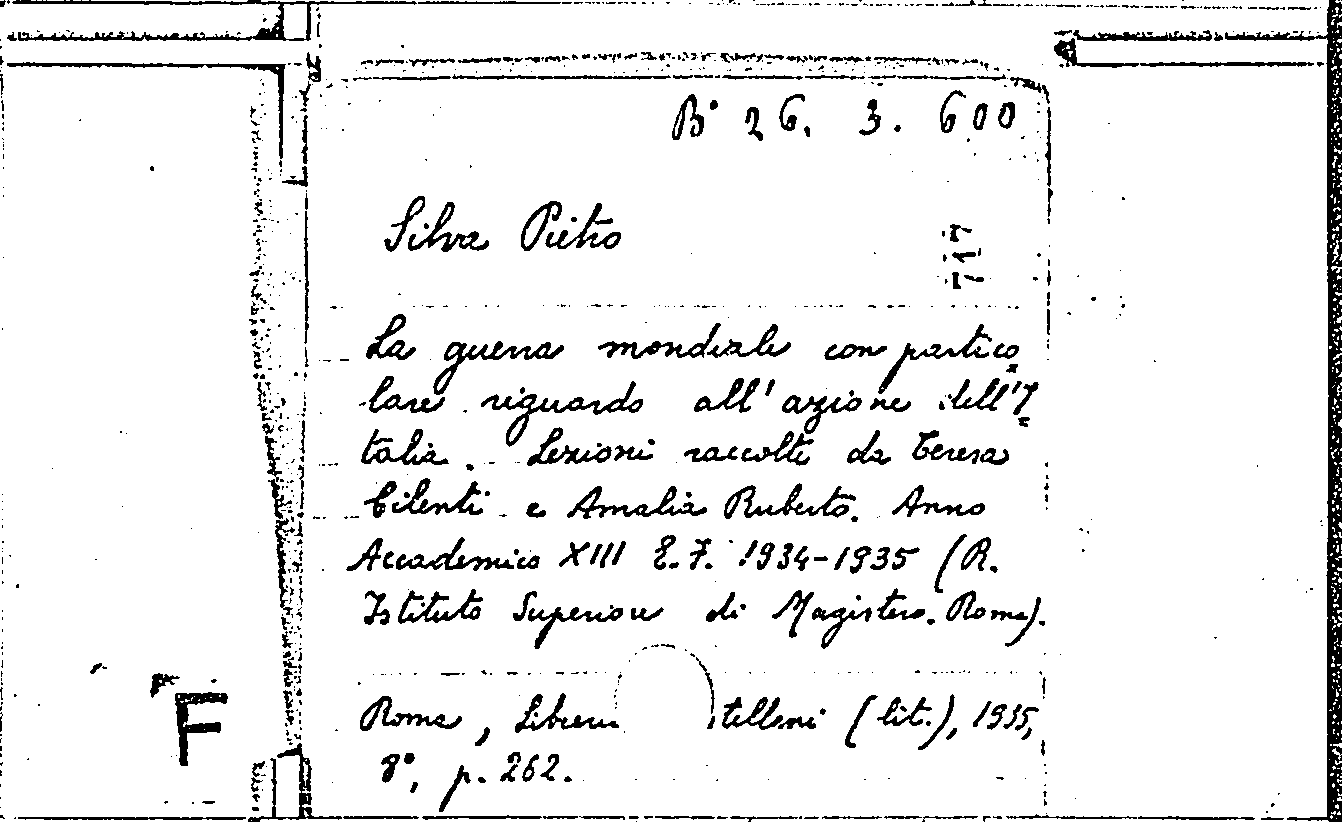 B° 26. 3. 600
Silva Pietro
717
La guerra mondiale con partico
lare riguardo all'azione dell'I
talia. Lezioni raccolte da Teresa
Cilenti e Amalia Ruberto. Anno
Accademico XIII E.F. 1934-1935 (R.
Istituto Superiore di Magistero. Roma).
Roma, (lit.), 1935,
8°, p. 262.
F